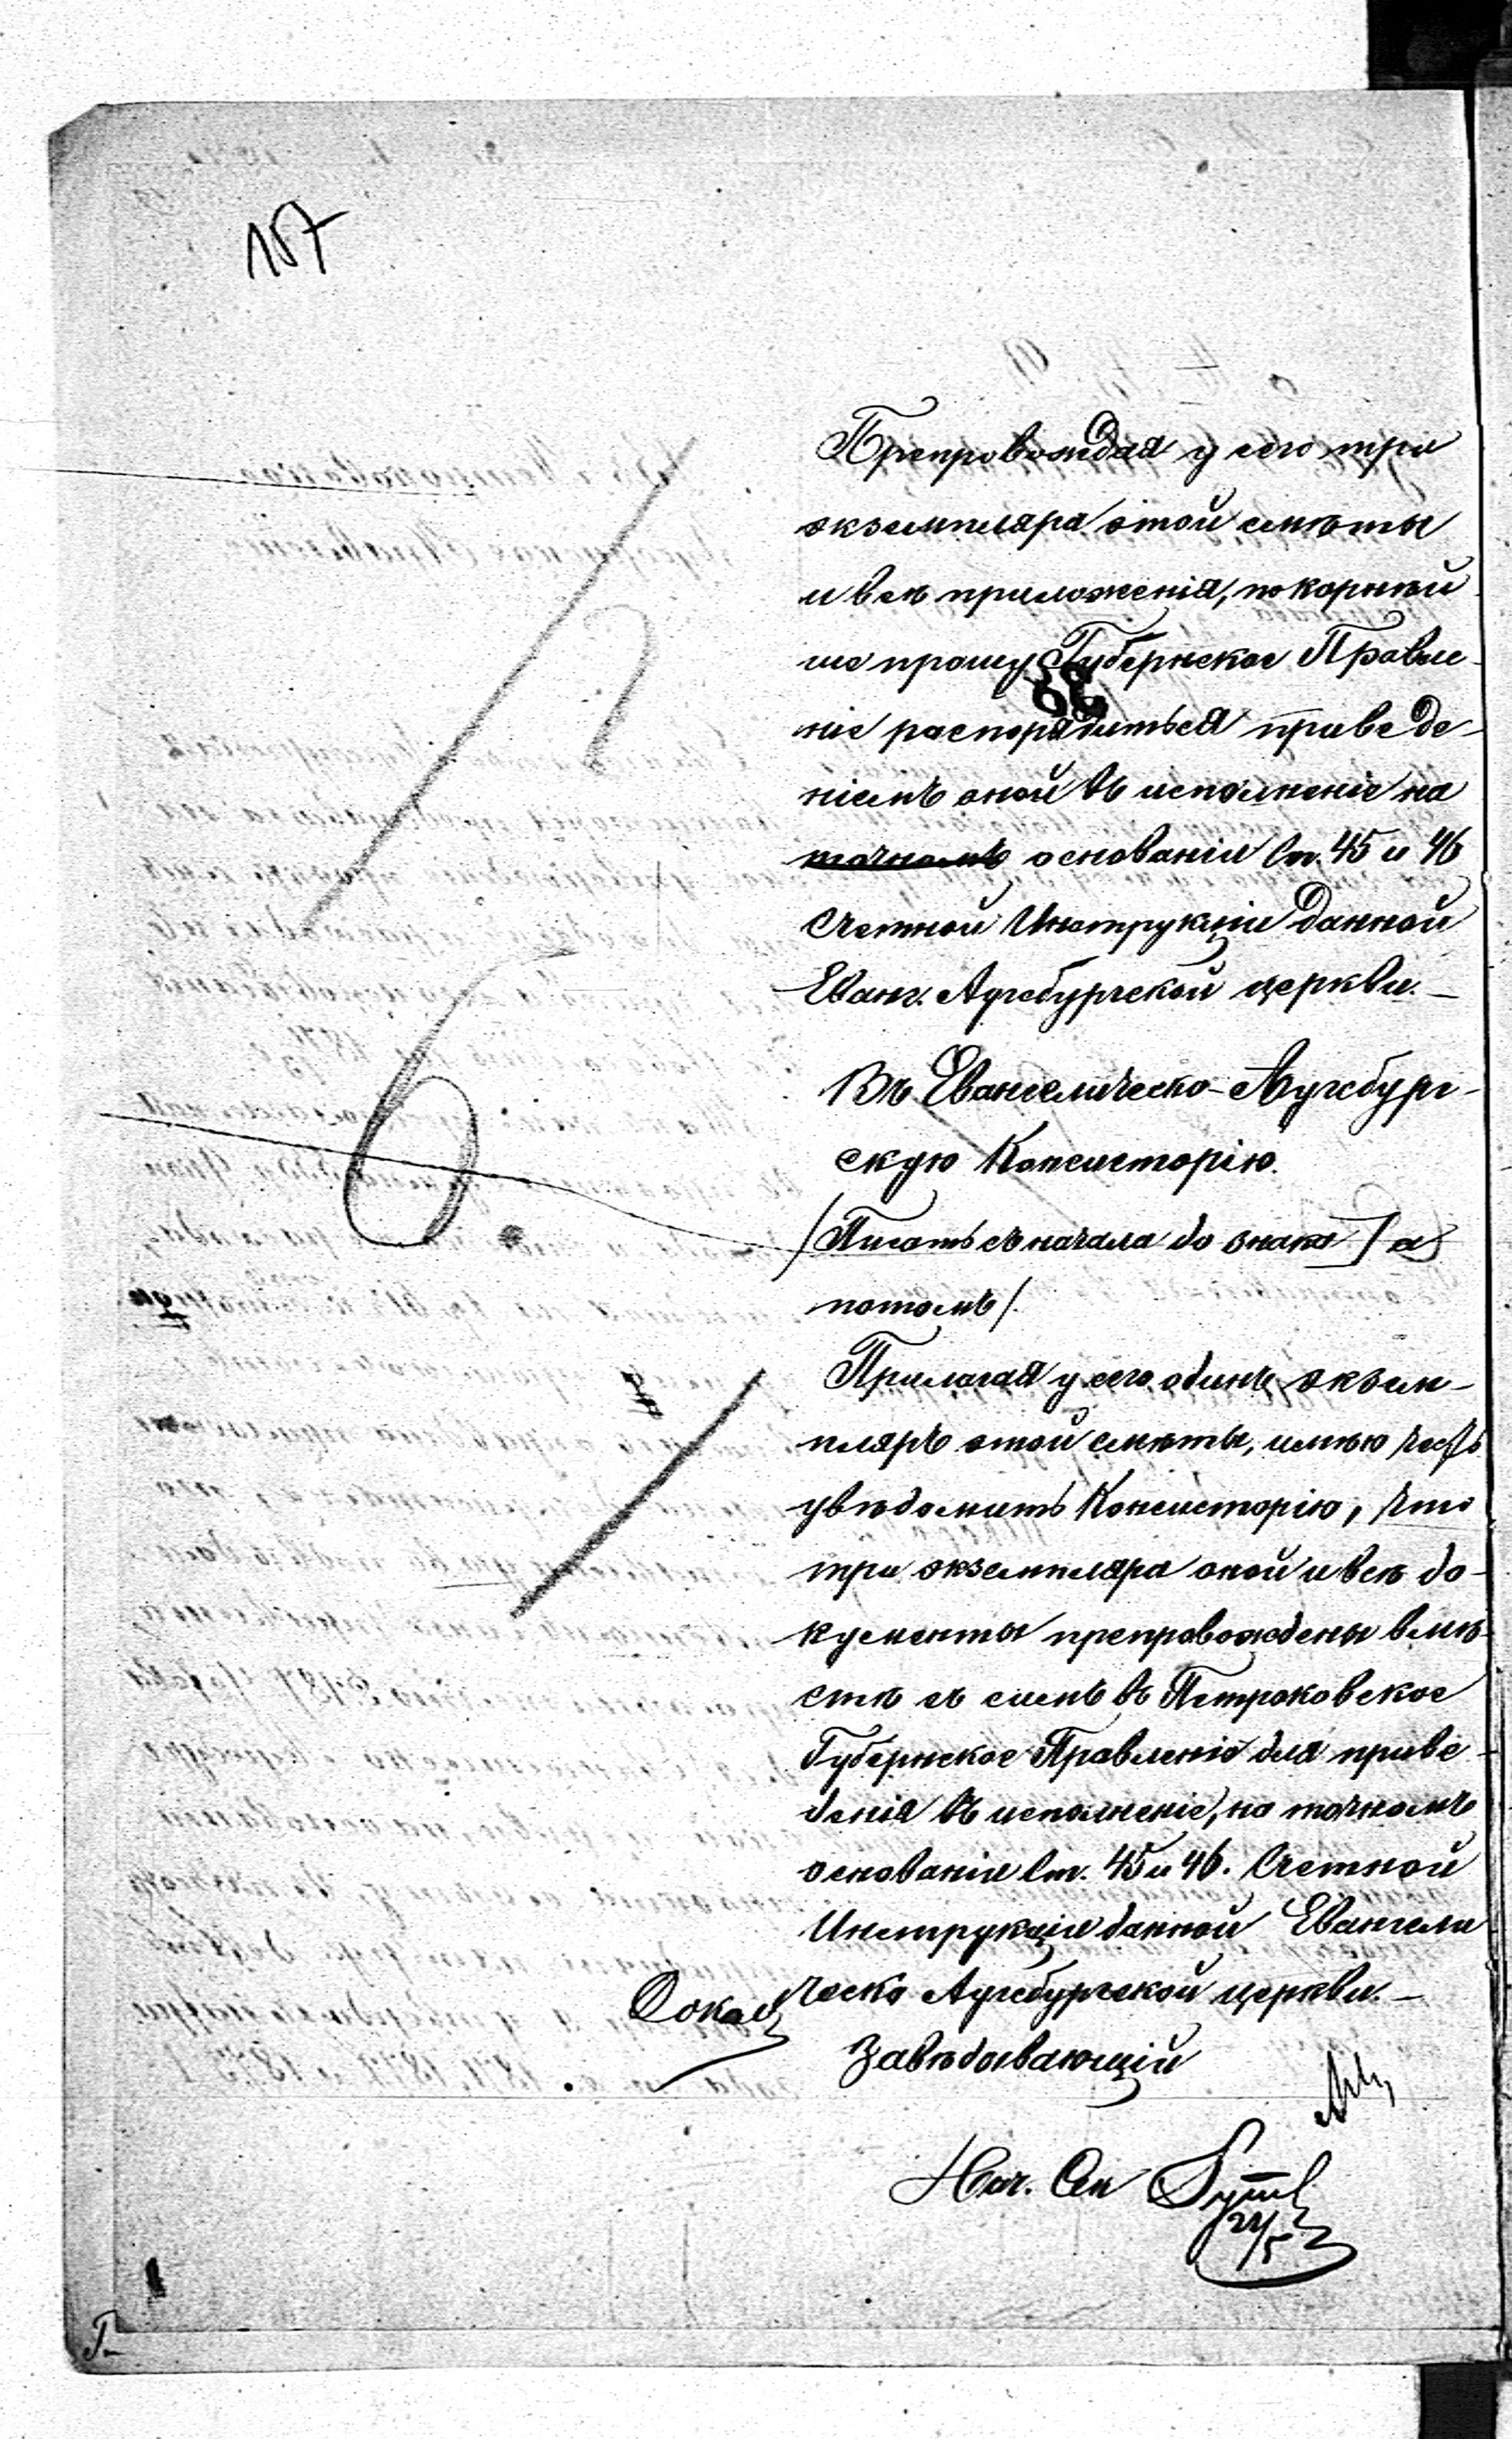 157
Препровождая у сего три
экземпляра этой смѣты
и всѣ приложенія, покорнѣй
ше прошу Губернское Правле-
ніе распорядиться приведе-
ніемъ оной въ исполненіе на
точномъ основаніи Ст. 45 и 46
Счетной Инструкціи данной
Еванг. Аугсбургской церкви.—
Въ Евангелическо-Аугсбург-
скую Консисторію.
/Писать съ начала до знака ] а
потомъ/.
Прилагая у сего одинъ экзем-
пляръ этой смѣты, имѣю честь
увѣдомить Консисторію, что
три экземпляра оной и всѣ до-
кументы препровождены вмѣ-
стѣ съ симъ въ Петроковское
Губернское Правленіе для приве-
денія въ исполненіе, на точномъ
основаніи Ст. 45 и 46. Счетной
Инструкціи данной Евангели
ческо Аугсбургской церкви.—
Завѣдывающій
Нач. От
24/5